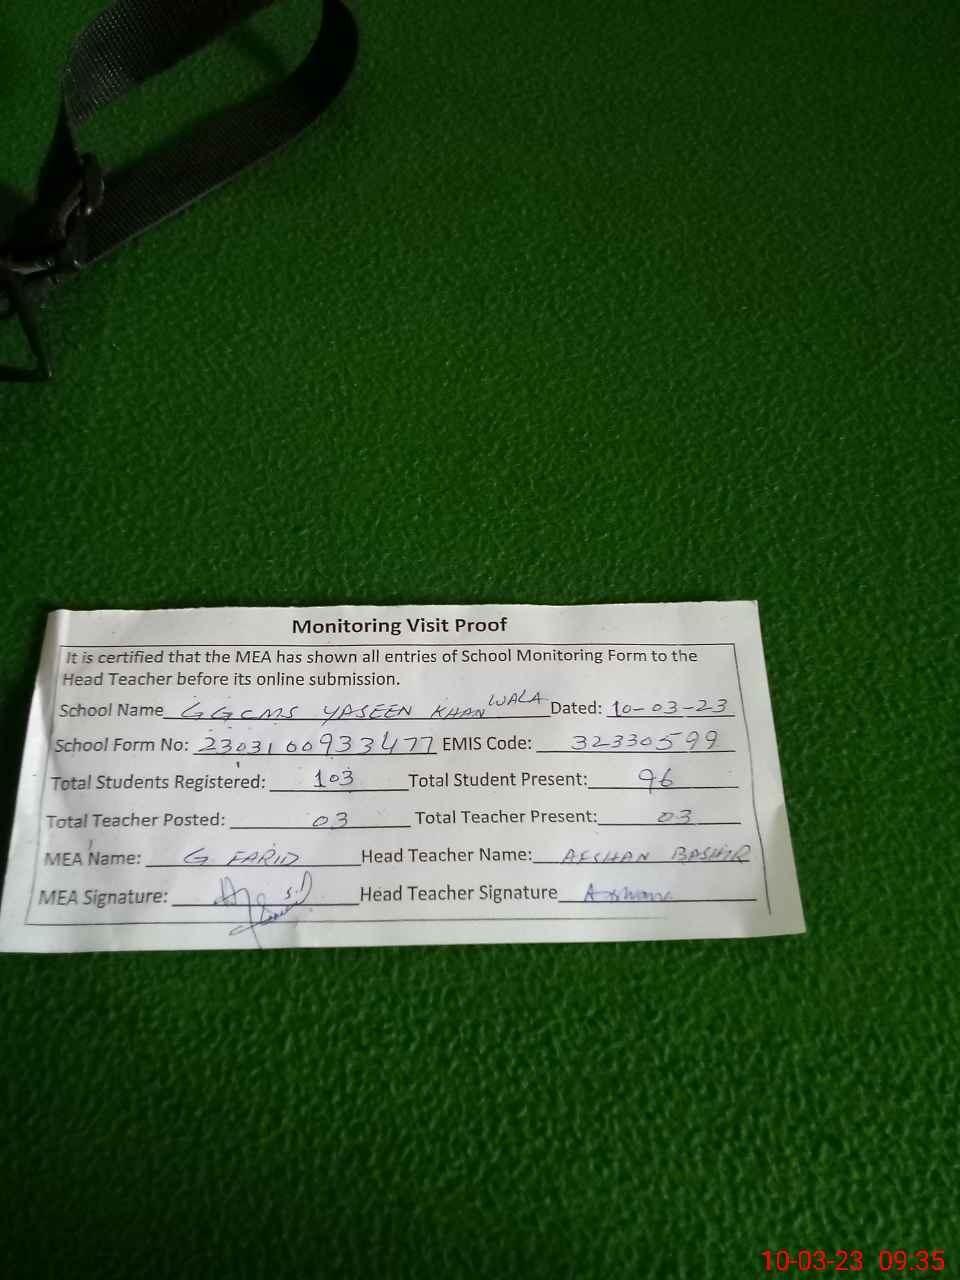 Monitoring Visit Proof
It is certified that the MEA has shown all entries of School Monitoring Form to the
Head Teacher before its online submission.
School Name GGCMS YASEEN KHAN WALA Dated: 10-03-23
School Form No: 2303100933477 EMIS Code: 32330599
Total Students Registered: 103 Total Student Present: 96
Total Teacher Posted: 03 Total Teacher Present: 03
MEA Name: G FARID Head Teacher Name: AFSHAN BASHIR
MEA Signature: Head Teacher Signature
10-03-23 09:35